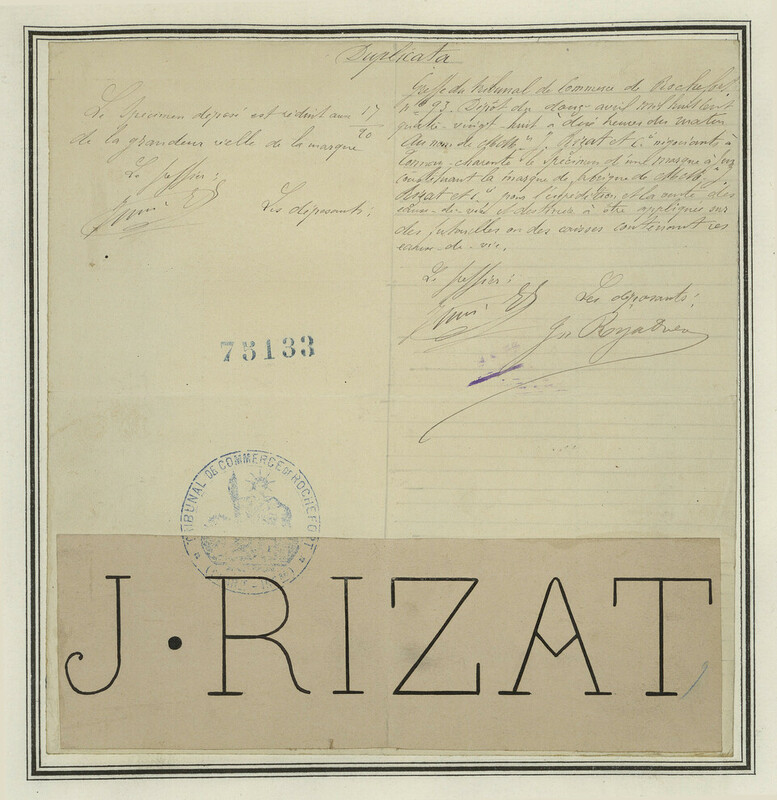 Duplicata
Le Specimen déposé est réduit aux 17/20
de la grandeur réelle de la marque
Le greffier:
Les déposants:
Greffe du tribunal de Commerce de Rochefort
N° 93. Dépôt du douze avril mil huit cent
quatre-vingt-huit à deux heures du matin
au nom de J. Rizat et Cie négociants à
Tonnay-Charente le Spécimen d'une marque à feu
contenant la marque de fabrique de
Rizat et Cie pour l'expédition et la vente des
eaux-de-vie, et destinée à être appliquée sur
des futailles ou des caisses contenant ces
eaux-de-vie.
Le greffier:
Les déposants:
75133
TRIBUNAL DE COMMERCE DE ROCHEFORT
J·RIZAT